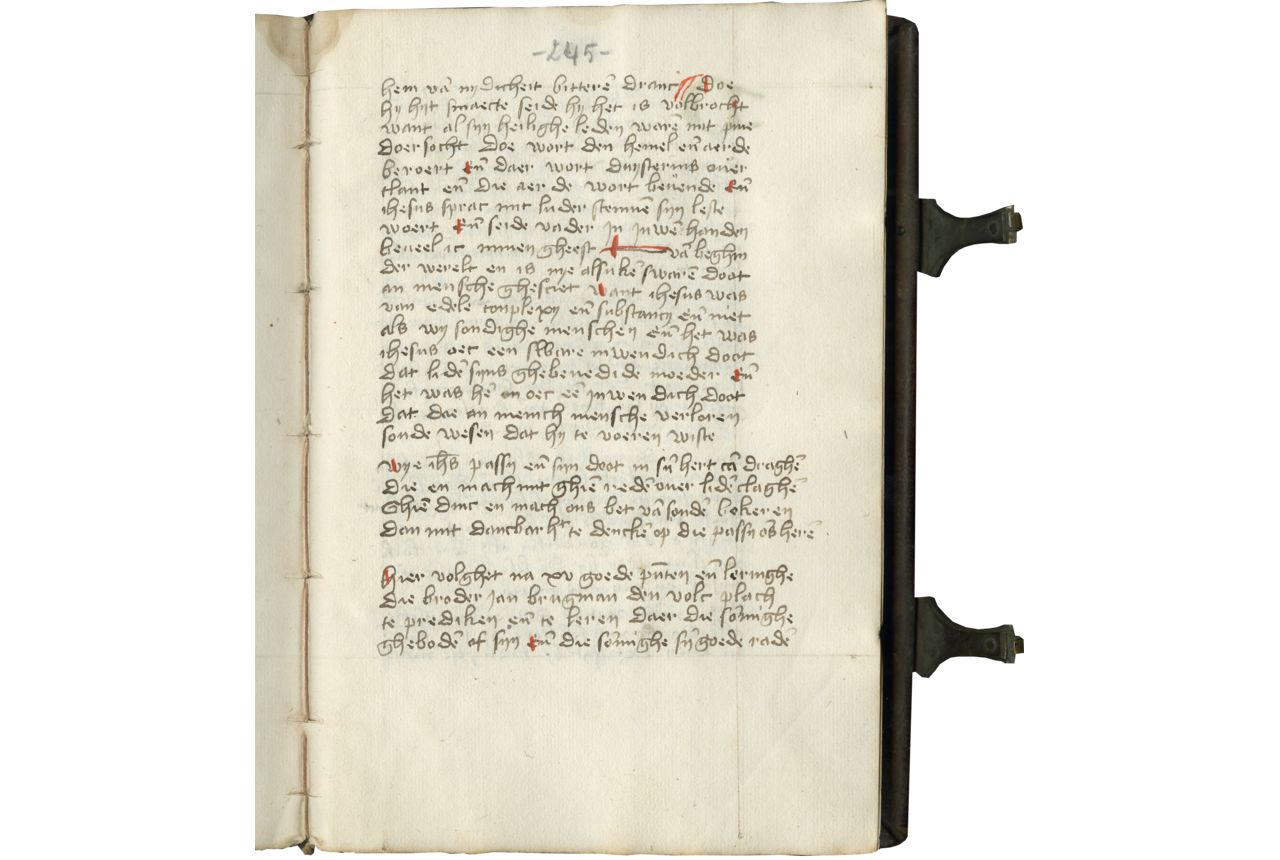 -245-
hem vā nydicheit bitterē dranc Doe
hy hyt smaecte seide hy het is volbrocht
want al syn heilighe leden warē mit pine
doersocht Doe wort den hemel eñ aerde
beroert Eñ daer wort duysternis ouer
tlant eñ die aer de wort beuende Eñ
ihesus sprac mit luder stemmē syn leste
woert Eñ seide vader in juwē handen
beueel ic minen gheest vā beghin
der werelt en is nye alsulkē swarē doot
an mensche ghesciet Want ihesus was
van edele conplexy eñ substancy eñ niet
als wy sondighe menschen eñ het was
ihesus oec een sware inwendich doot
dat lidē syns ghebenedide moeder Eñ
het was hē an oec eē inwendich doot
dat doe an menich mensche verloren
sonde wesen dat hy te voeren wiste
Wye ihs passy eñ syn doot in sy hert cā draghē
die en mach mit ghiē redē ouer lidē claghē
Ghiē dinc en mach ons bet vā sondē bekeren
dan mit dancbar ht te denckē op die passy os herē
Hier volghet na xv goede pūten eñ leringhe
die broder jan brugman den volc plach
te prediken eñ te leren daer die sōmighe
ghebodē of syn Eñ die sōmighe sy goede radē